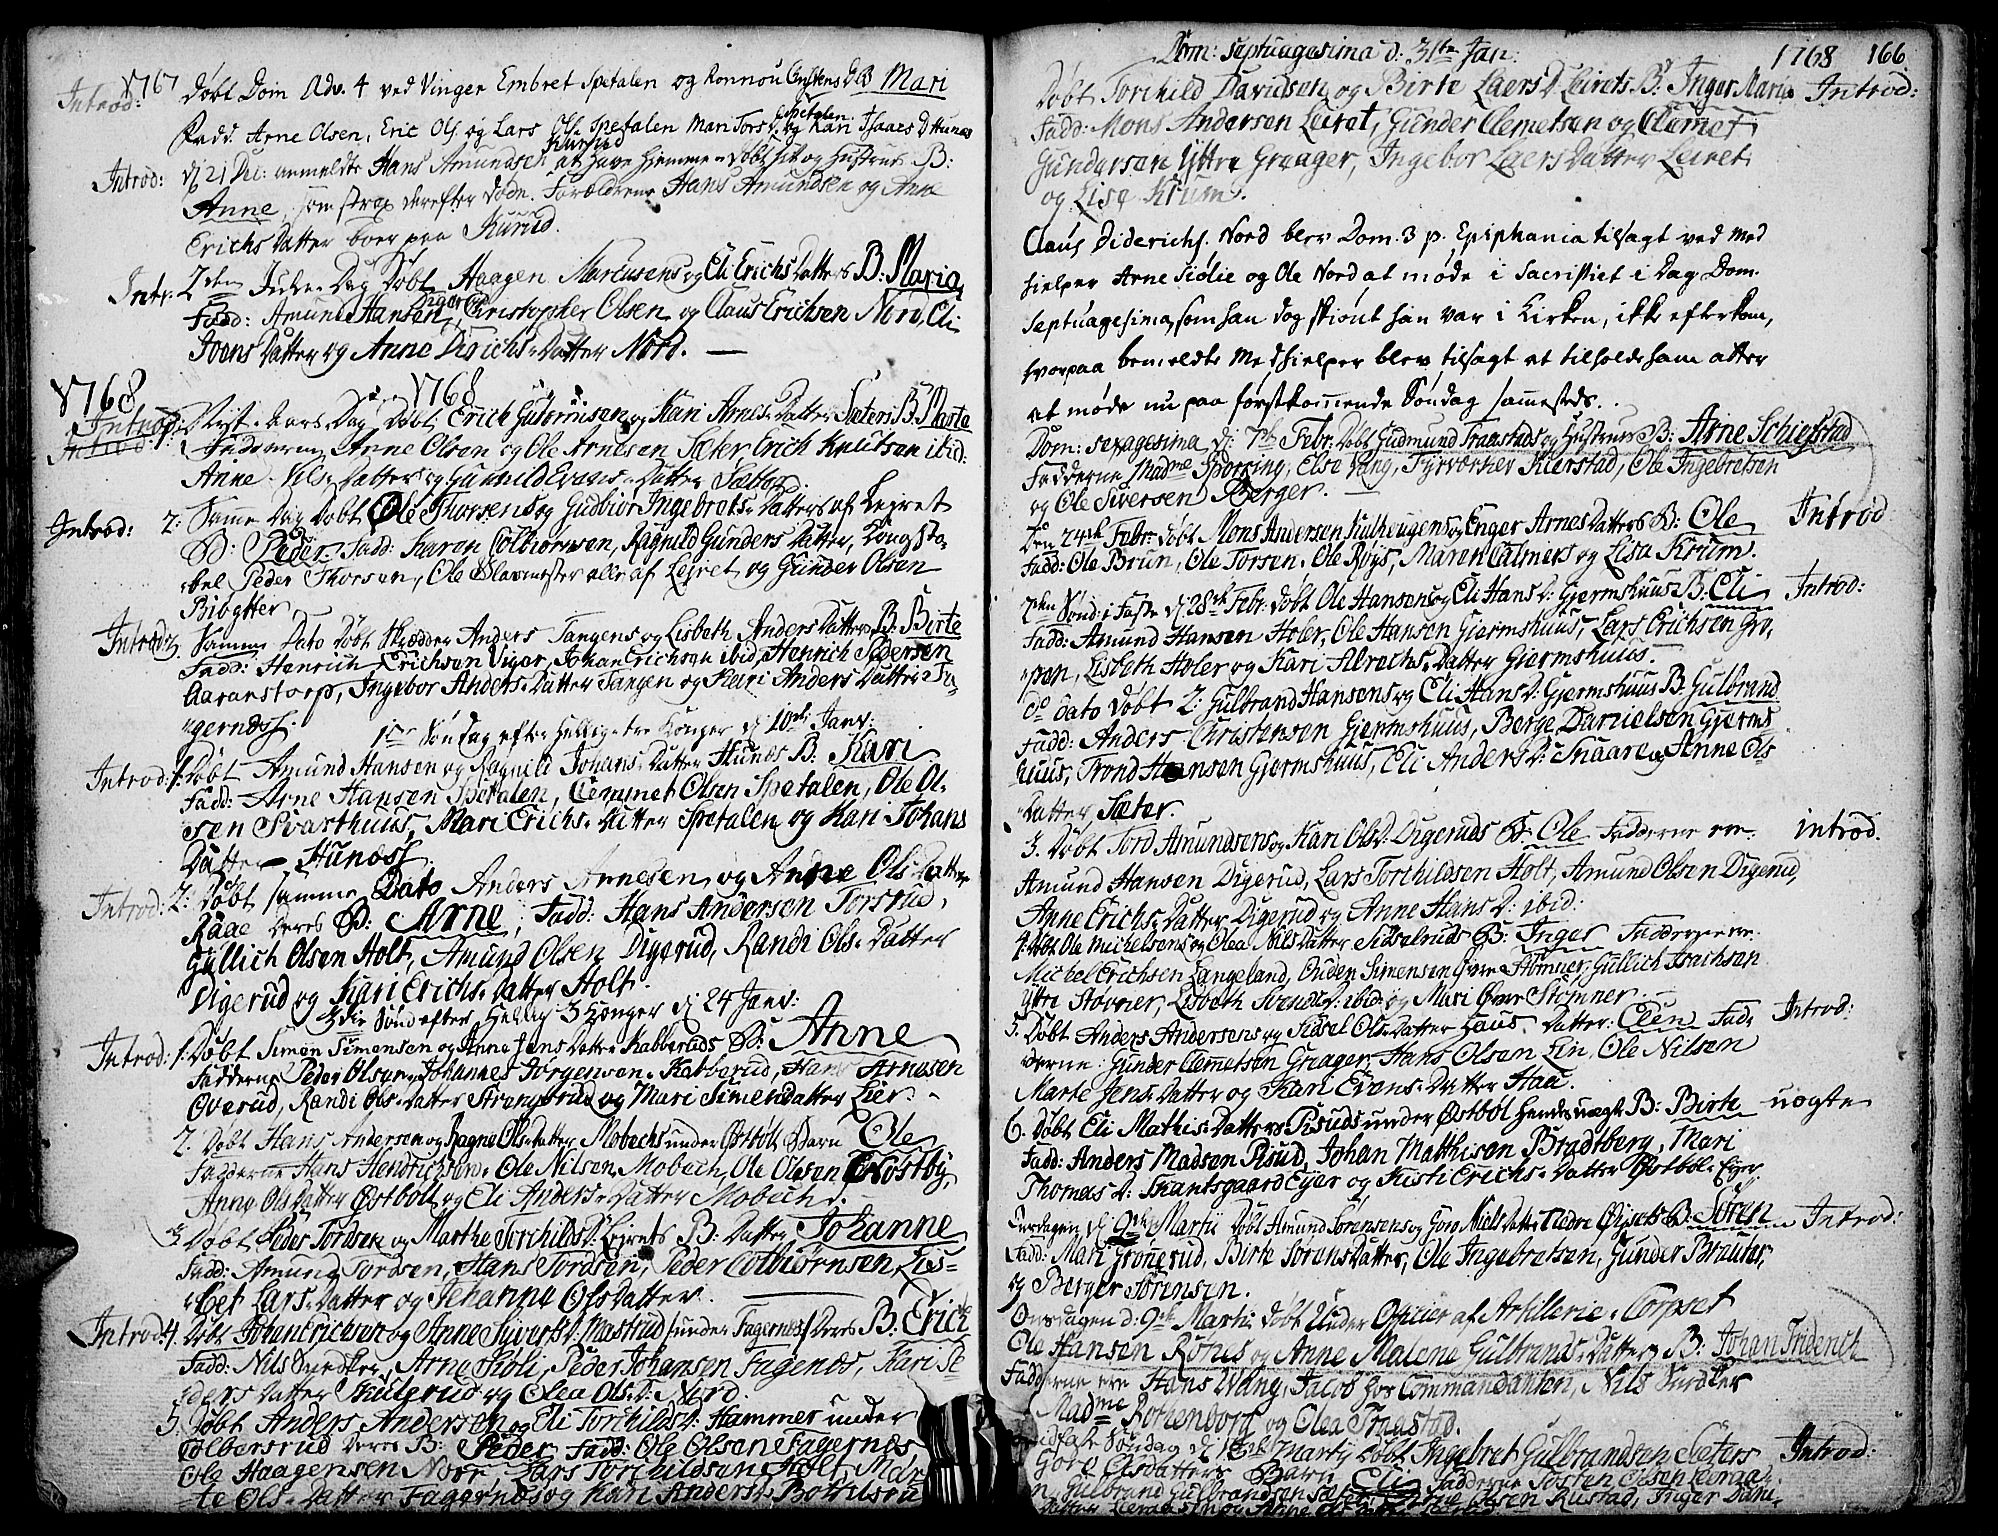 1767 Døbt Dom Adv. 4 ved Vinger Embret Spetalen og Ronnou Cristens D B Mari
Introd:
Fadd. Arne Olsen, Eric Ols. og Lars Ols. Spetalen Mari Tors D. Spetalen og Kari Isaacs D Hunæs
Introd: d 21 Dec: anmeldte Hans Amundsen Kurud at have hiemme-døbt sit og Hustrues B:
Anne, som strax derefter døde. Forældrene Hans Amundsen og Anne
Erichs Datter boer paa Kurud.
Intr. 2den Jule-Dag Døbt Haagen Marcusens og Eli Erichs Datters B: Maria,
Fadd: Amund Hansen Digerud, Christopher Olsen og Claus Erichsen Nord, Eli
Joens Datter og Anne Dirichs-Datter Nord.
1768 1768
Introd: Nyt-Aars-Dag Døbt Erich Gulbrandsen og Kari Arnes-Datter Sæters B. Marte
Introd: 1. Fadderne Arne Olsen og Ole Arnesen Sæter Erich Knutsen ibid:
Anne Nils-Datter og Gunnild Evens-Datter Sætter.
Introd: 2: Samme Dag Døbt Ole Thorsens og Gudbior Ingebrets-Datters af Leyret
B: Peder. Fadd: Karen Colbiørnsen, Ragnild Gunders Datter, Kongsto-
bel Peder Thorsen, Ole Slavmester alle af Leyret og Gunder Olsen
Bibgtter
Introd: Samme Dato Døbt Skrædder Anders Tangens og Lisbeth Anders Datters B: Birte
Fadd: Henrich Erichsen Viger, Johan Erichsen ibid, Henrich Pedersen
Aaranstorp, Ingebor Anders-Datter Tangen og Kari Anders Datter Fa-
gernæss.
1ste Søndag efter Hellig-tre Konger d 10de Janv:
Introd: 1. Døbt Amund Hansen og Ragnild Johans-Datter Hunæs B: Kari
Fadd: Arne Hansen Spetalen, Clemmet Olsen Spetalen, Ole Ol-
sen Svarthuus, Mari Erichs-Datter Spetalen og Kari Johans
Datter Hunæss.
Introd: 2: Døbt samme Dato Anders Arnesen og Anne Ols-Datter
Raae deres B: Arne, Fadd: Hans Andersen Torsrud,
Gullich Olsen Holt, Amund Olsen Digerud, Randi Ols-Datter
Digerud og Kari Erichs-Datter Holt.
3die Sønd efter Hellig 3 Konger d 24 Janv:
Introd: 1. Døbt Simon Simensen og Anne Jens Datter Kabberuds B: Anne
Fadderne Peder Olsen, Johannes Jørgensen Kabberud, Hans Arnesen
Overud, Randi Ols-Datter Strangerud og Mari Simensdatter Lier.
2. Døbt Hans Andersen og Ragne Ols-Datter Mobechs under Østbøl Barn Ole
Fadderne Hans Hendrichsen, Ole Nilsen Mobech, Ole Olsen Nostby,
Anne Ols Datter Østbøl og Eli Anders-Datter Mobech.
3 Døbt Peder Tordsen og Marthe Torchilds D: Leyrets B: Datter Johanne
Fadd: Amund Tordsen, Hans Tordsen, Peder Colbiørnsen, Lies-
bet Lars-Datter og Johanna Ols Datter.
Introd: 4. Døbt Johan Erichsen og Anne Siverts D: Nastrud under Fagernes Deres B: Erich
Fadd: Nils Snedker, Arne Skiøli, Peder Johansen Fagenæs, Kari Pe-
ders Datter Skulerud og Olea Ols D: Nord.
5. Døbt Anders Andersen og Eli Torchilds D: Hammer under
Colbersrud Deres B: Peder Fadd: Ole Olsen Fagernæs
Ole Haagensen Nor, Lars Torchildsen Holt Mar-
te Ols-Datter Fagernæs og Kari Anders D Bottelsru
Dom: Septuagesima d: 31te Jan: 1768 166
Døbt Torchild Davidsen og Birte Laers D Leirets B: Inger Marie Introd:
Fadd: Mons Andersen Leiret, Gunder Clemetsen og Clemet
Gundersen Yttre Greager, Ingebor Laers Datter Leiret
og Lise Krum.
Claus Diderichs. Nord blev Dom. 3 p. Epiphania tilsagt ved Med
hielper Arne Siølie og Ole Nord at møde i Sacristiet i Dag Dom.
Septuagesima, som han dog skiønt han var i Kirken, ikke efterkom,
hvorpaa bemeldte Medhielper blev tilsagt at tilholde ham atter
at møde nu paa førstkommende Søndag sammesteds.
Dom: Sexagesima d: 7de Febr. Døbt Gudmund Traastads og Hustrues B: Arne Schiefstad
Fadderne Madme Sporring, Else Vang, Fyrverker Kierstad, Ole Ingebretsen
og Ole Siversen Berger.
Den 24de Febr. døbt Mons Andersen Kulhougens og Enger Arnes Datters B: Ole Introd
Fadd: Ole Brun, Ole Torsen, Ole Roys, Maren Calmers og Lisa Krum.
2den Sønd: i Faste d 28de Febr: døbt Ole Hansens og Eli Hans D: Gjermshuus B. Eli Introd:
Fadd: Amund Hansen Holer, Ole Hansen Gjermshuus, Lars Erichsen Gro,
Lisbeth Holer og Kari Albrechts-Datter Gjermshuus.
do dato døbt 2: Gulbrand Hansens og Eli Hans D: Gjermshuus B: Gulbrand
Fadd: Anders Christensen Gjermshuus, Berge Danielsen Gjerms
huus, Trond Hansen Gjermshuus, Eli Anders D: Snaare og Anne Ols
Datter Sæter.
3. Døbt Tord Amundsens og Kari Ols D: Digeruds B: Ole Fadderne ere introd.
Amund Hansen Digerud, Lars Torchildsen Holt, Amund Olsen Digerud,
Anne Erichs-Datter Digerud og Anne Hans D: ibid:
4. Døbt Ole Michelsens og Olea Nils Datter Sidselruds B: Inger Fadderne ere
Michel Erichsen Langeland, Ouden Simensen Øvre Stømner, Gullich Isachsen
Yttre Stovner, Lisbeth Svends D: ibid: og Mari Øvre Stømner.
5. Døbt Anders Andersens og Sidsel Ols-Datter Haus. Datter: Elen Fad- Introd:
derne: Gunder Clemetsen Greager, Hans Olsen Lin, Ole Nilsen
Marte Jens-Datter og Kari Evens-Datter Haa.
6. Døbt Eli Mathis-Datters Risuds under Østbøl hendes uægte B: Birte uægte
Fadd: Anders Madsen Risud, Johan Matthisen Bradtberg, Mari
Thomas D: Skantsgaard Eyer og Kisti Erichs-Datter Østbøl Eyer
Onsdagen d 9de Martii Døbt Amund Sørensens og Goro Niels Datter Nedre Øyset B: Sören Introd:
Fadd: Mari Gronnerud, Birte Sorens Datter, Ole Ingebretsen, Gunder Brauter,
og Berger Sörensen.
Onsdagen d: 9de Marti: døbt Under Officier af Artillerie-Corpset
Ole Hansen Rønes og Anne Malene Gulbrands-Datters B: Johan Friderich
Fadderne ere Hans Wang, Jacob hos Commandanten, Nils Snedker
Madme Rothenborg og Olea Traastad.
Midfaste Søndag d 13de Martij Døbt Ingebret Gulbrandsen Sæters Introd:
Goro Olsdatters Barn Eli Fadderne Tosten Olsen
Gulbrand Gulbrandsen Sæter Olsen Rustad, Inger Dani-